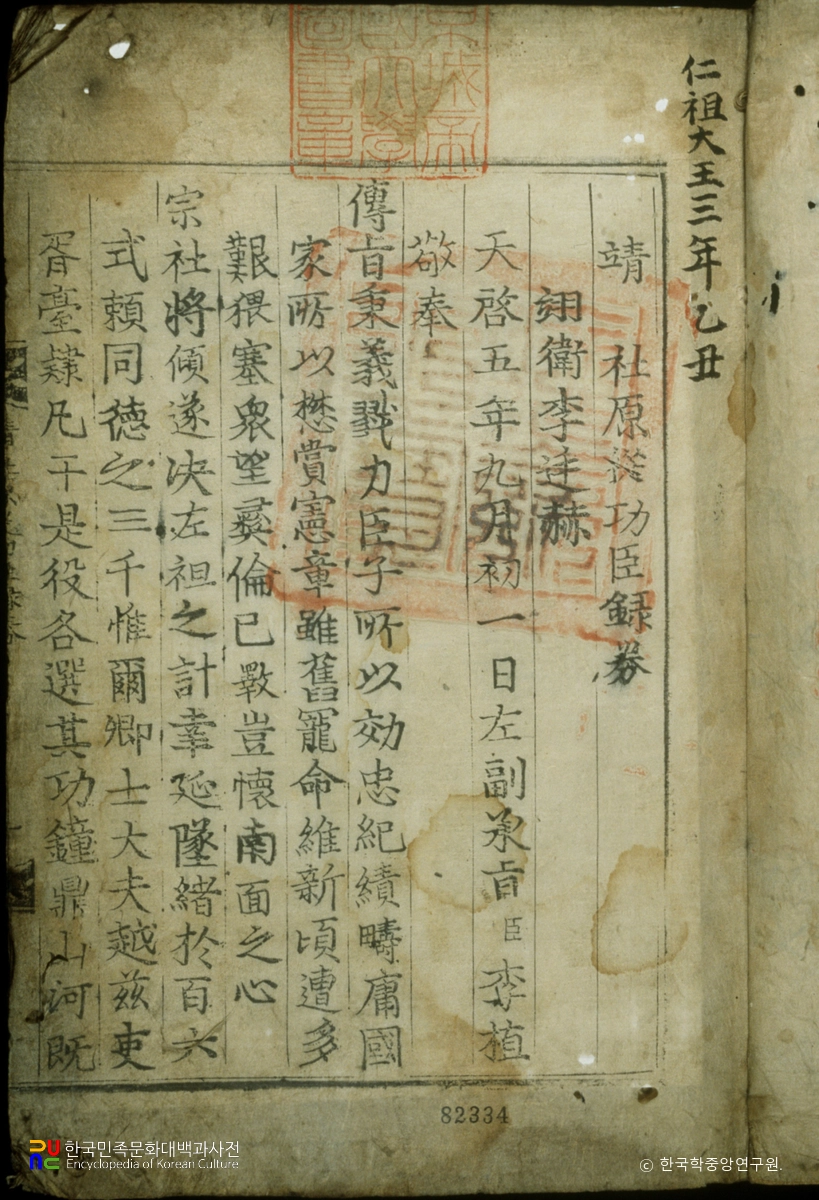 仁祖大王三年乙丑
靖社原從功臣錄券
翊衛李逢赫
天啓五年九月初一日左副承旨臣李植
敬奉
傳旨秉義戮力臣子所以效忠紀績疇庸國
家所以懋賞憲章雖舊寵命維新頃遭多
艱猥塞衆望彛倫已斁豈懷南面之心
宗社將傾遂決左袒之計幸延墜緖於百六
式賴同德之三千惟爾卿士大夫越玆吏
胥臺隷凡干是役各選其功鐘鼎山河旣
82334
한국민족문화대백과사전
Encyclopedia of Korean Culture
© 한국학중앙연구원.